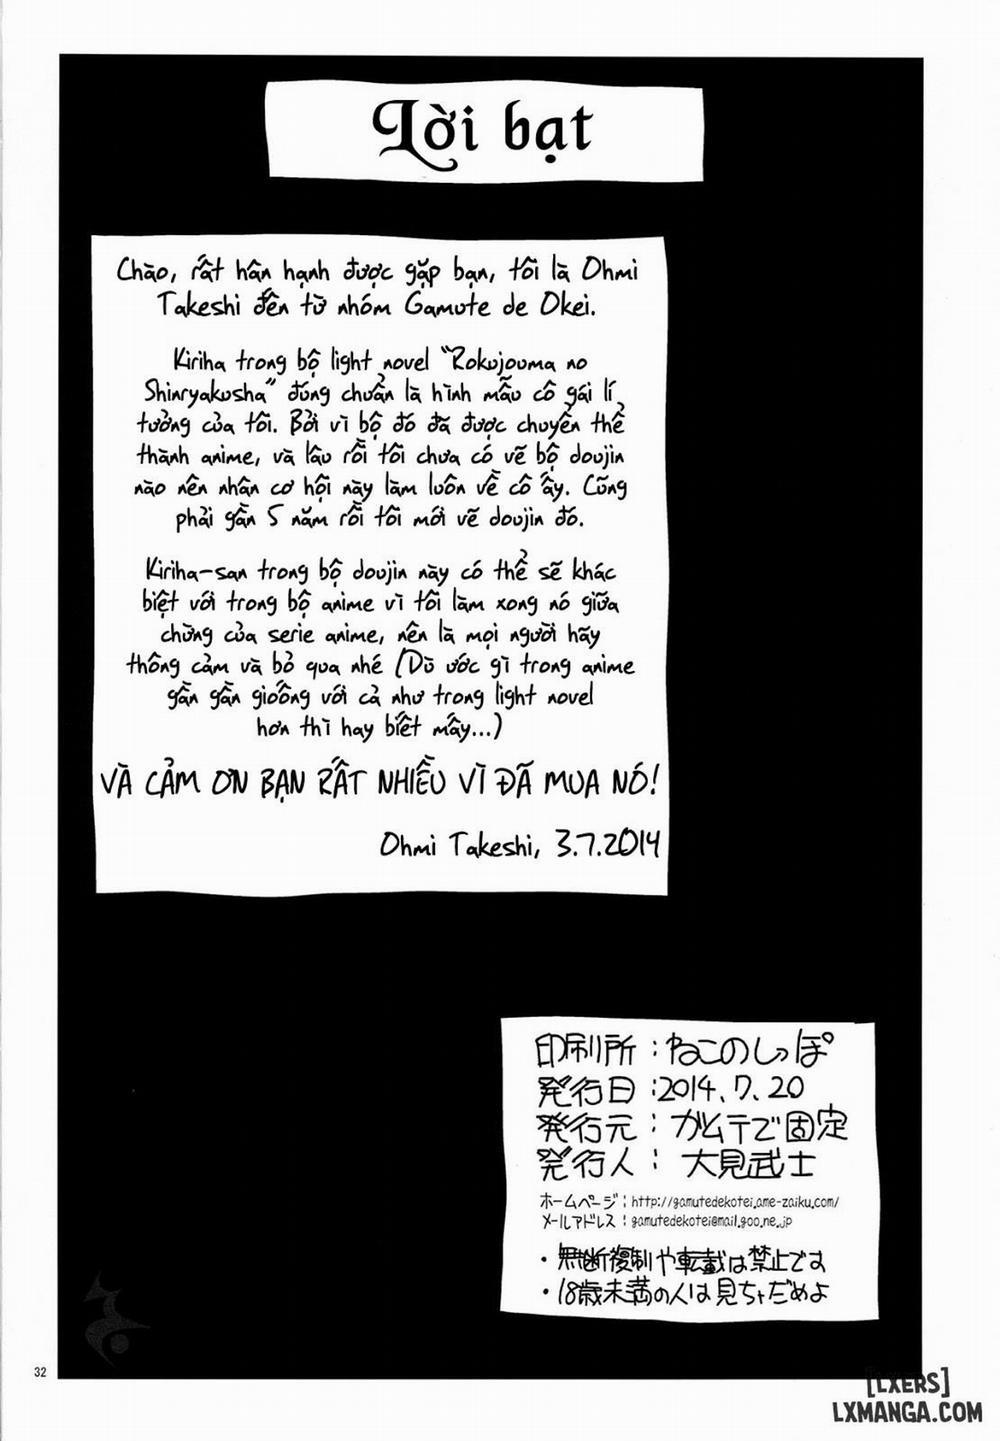 Lời bạt
Chào, rất hân hạnh được gặp bạn, tôi là Ohmi
Takeshi đến từ nhóm Gamute de Okei.
Kiriha trong bộ light novel "Rokujouma no
Shinryakusha" đúng chuẩn là hình mẫu cô gái lí
tưởng của tôi. Bởi vì bộ đó đã được chuyển thể
thành anime, và lâu rồi tôi chưa có vẽ bộ doujin
nào nên nhân cơ hội này làm luôn về cô ấy. Cũng
phải gần 5 năm rồi tôi mới vẽ doujin đó.
Kiriha-san trong bộ doujin này có thể sẽ khác
biệt với trong bộ anime vì tôi làm xong nó giữa
chừng của serie anime, nên là mọi người hãy
thông cảm và bỏ qua nhé (Dù ước gì trong anime
gần gần gioống với cả như trong light novel
hơn thì hay biết mấy...)
VÀ CẢM ƠN BẠN RẤT NHIỀU VÌ ĐÃ MUA NÓ!
Ohmi Takeshi, 3.7.2014
印刷所：ねこのしっぽ
発行日：2014.7.20
発行元：ガムテで固定
発行人：大見武士
ホームページ：http://gamutedekotei.ame-zaiku.com/
メールアドレス：gamutedekotei@mail.goo.ne.jp
・無断複制や転載は禁止です
・18歳未満の人は見ちゃだめよ
32
[LXERS]
LXMANGA.COM